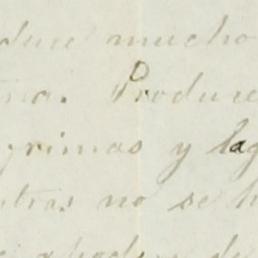 duce mucho
na. Produce
grimas y lag
ntras no se h